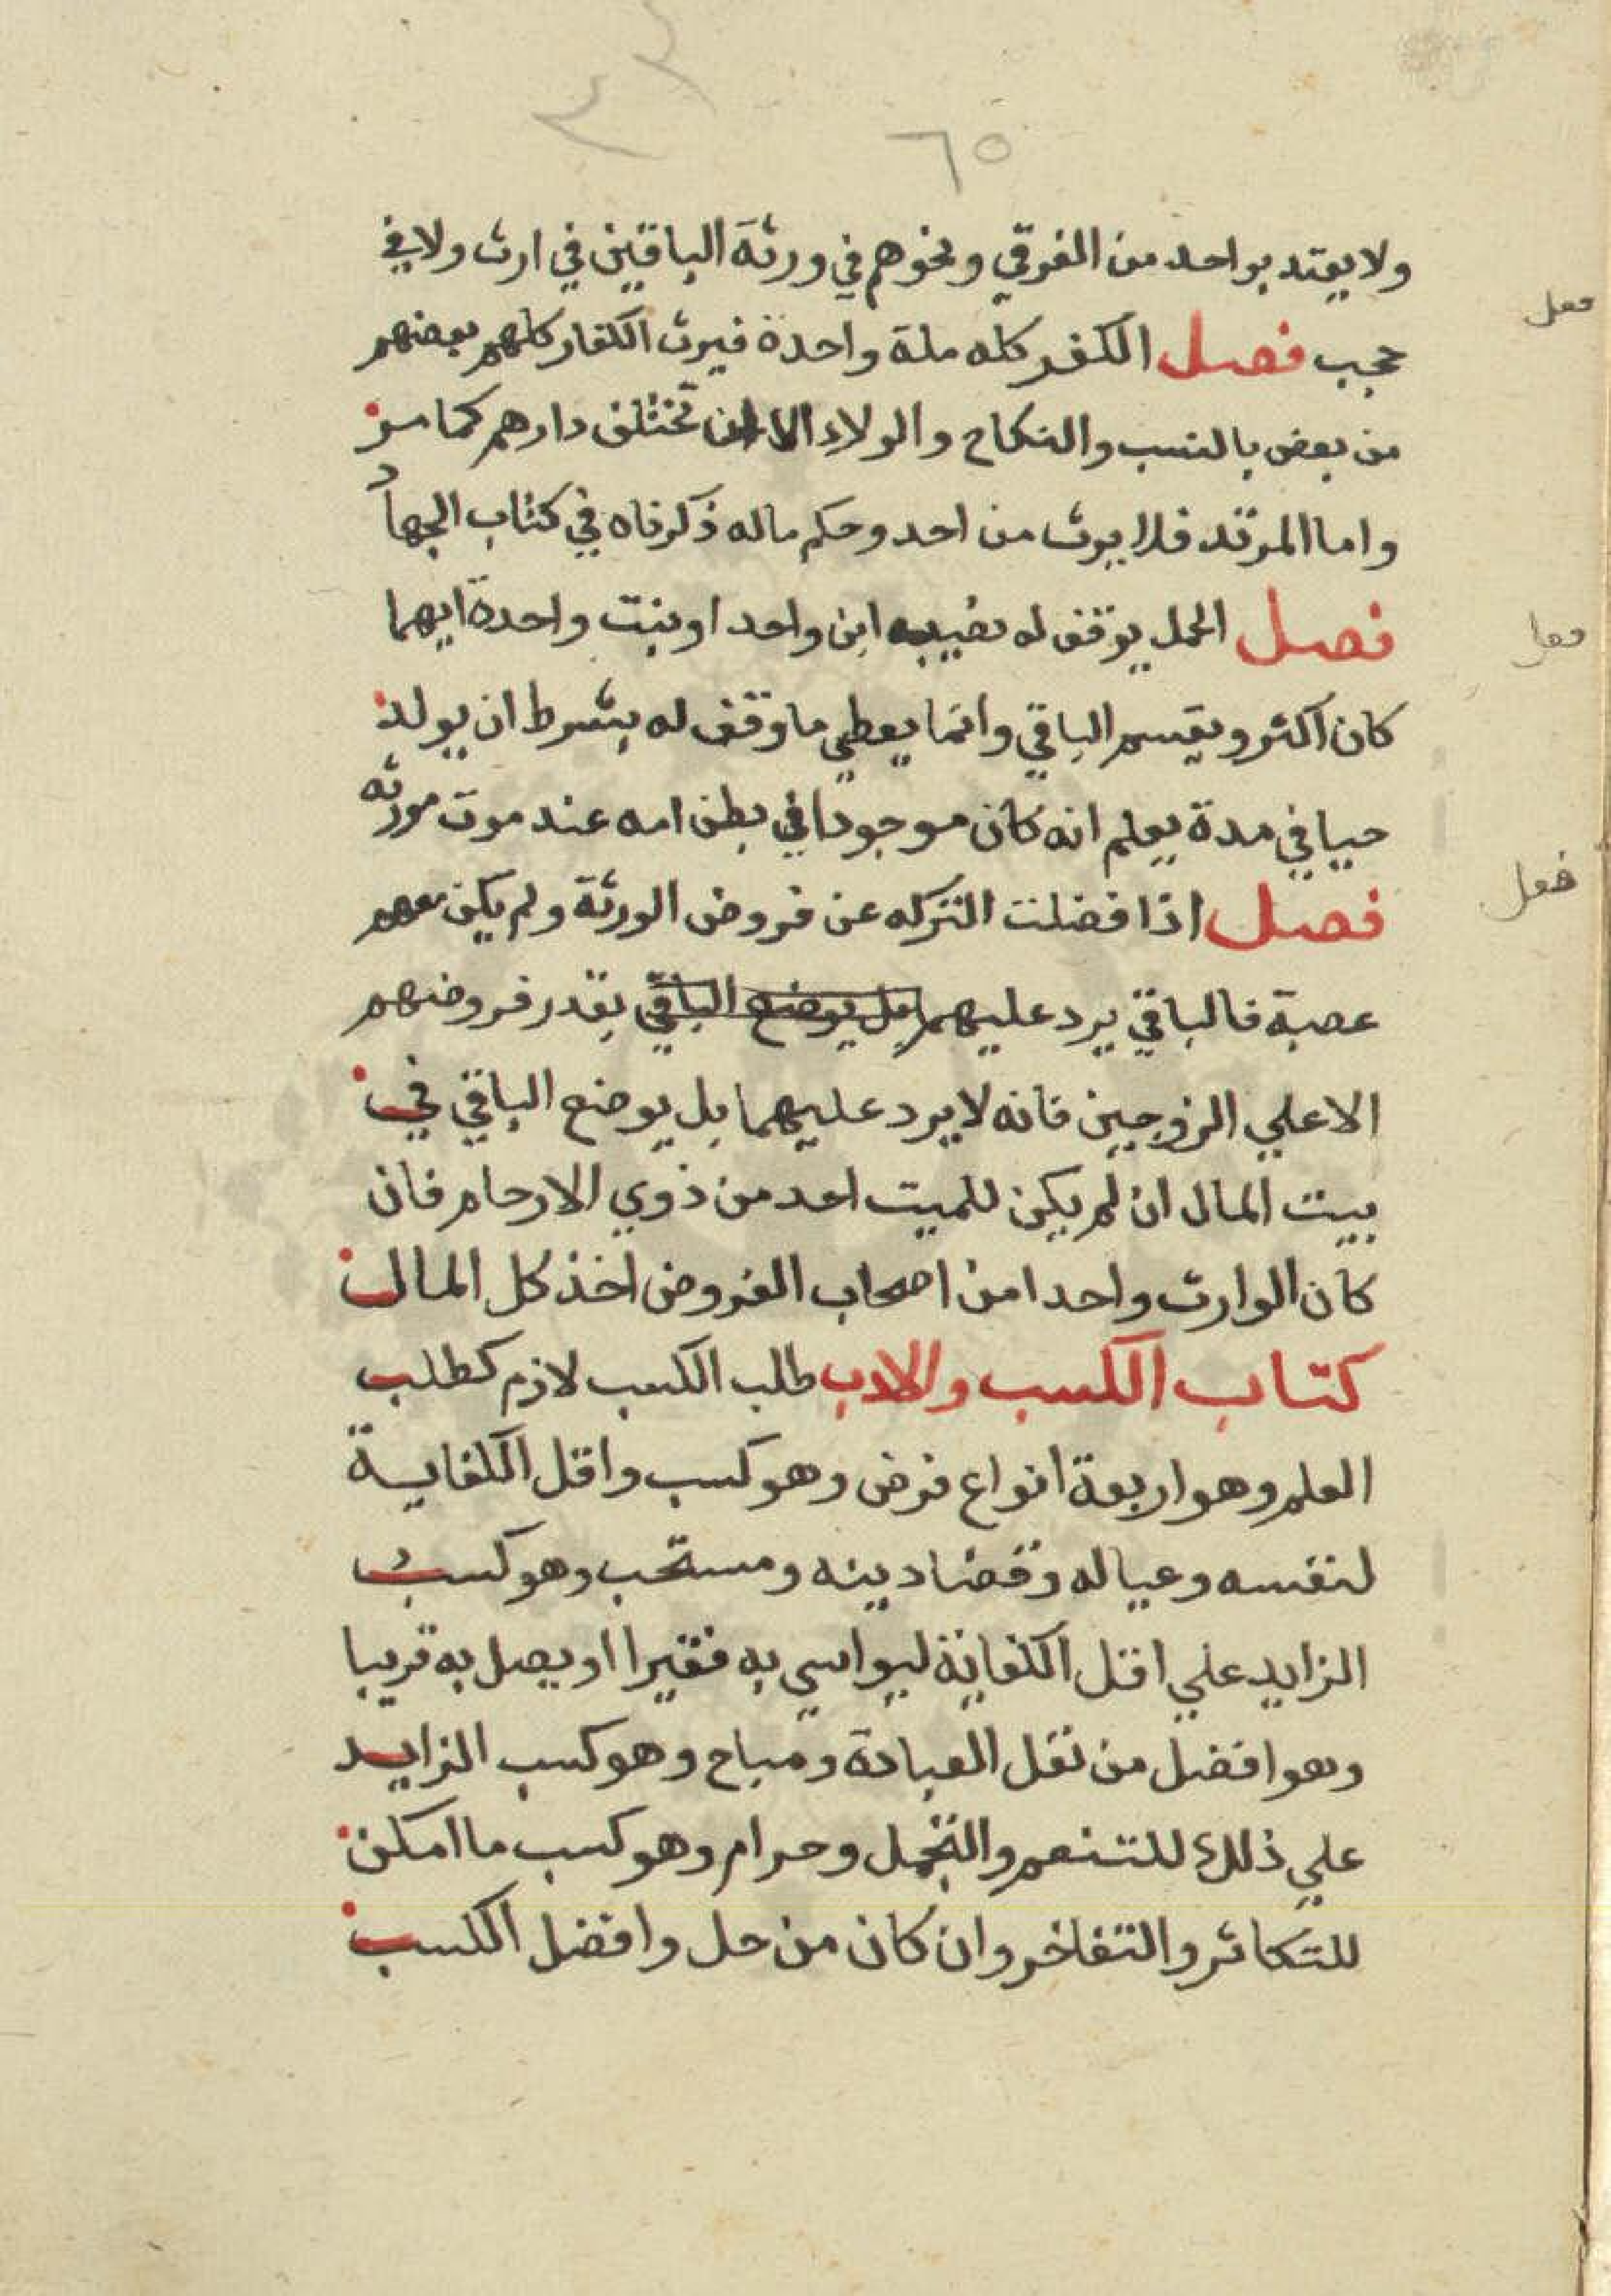 ٦٥
ولا يعتد بواحد من الغرقي ونحوهم في ورثة الباقين في ارث ولا في
حجب فصل الكفر كله ملة واحدة فيرث الكفار كلهم بعضهم
من بعض بالنسب والنكاح والولاء الا ان تختلف دارهم كما مر
واما المرتد فلا يرث من احد وحكم ماله ذكرناه في كتاب الجهاد
فصل الحمل يوقف له نصيب ابن واحد او بنت واحدة ايهما
كان اكثر ويقسم الباقي وانما يعطي ما وقف له بشرط ان يولد
حيا في مدة يعلم انه كان موجودا في بطن امه عند موت مورثه
فصل اذا فضلت التركه عن فروض الورثة ولم يكن معهم
عصبة فالباقي يرد عليهم بل يوضع الباقي بقدر فروضهم
الا علي الزوجين فانه لا يرد عليهما بل يوضع الباقي في
بيت المال ان لم يكن للميت احد من ذوي الارحام فان
كان الوارث واحدا من اصحاب الفروض اخذ كل المال
كتاب الكسب والادب طلب الكسب لازم كطلب
العلم وهو اربعة انواع فرض وهو كسب واقل الكفاية
لنفسه وعياله وقضا دينه ومستحب وهو كسب
الزايد علي اقل الكفاية ليواسي به فقيرا او يصل به قريبا
وهو افضل من نفل العبادة ومباح وهو كسب الزايد
علي ذلك للتنعم والتجمل وحرام وهو كسب ما امكن
للتكاثر والتفاخر وان كان من حل وافضل الكسب